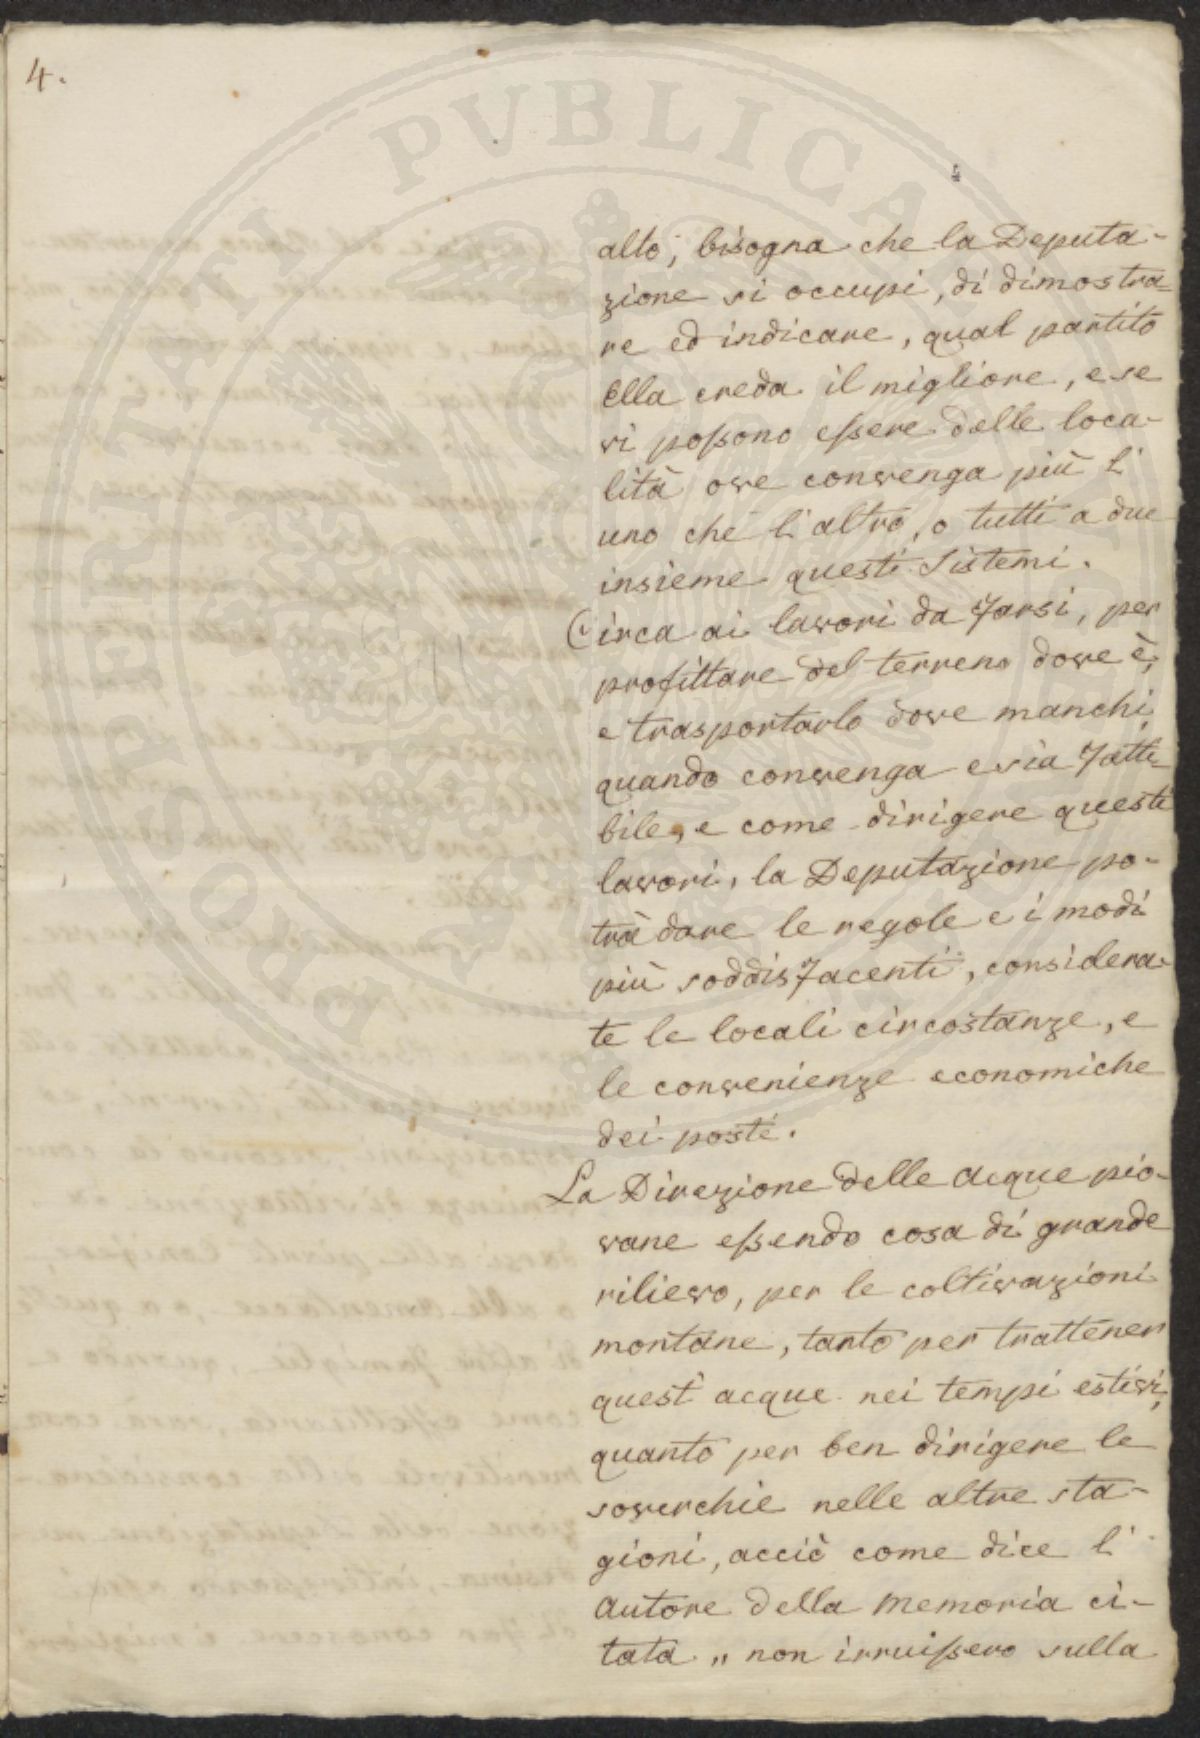 4.
4
alto, bisogna che la Deputa-
zione si occupi, di dimostra-
re ed indicare, qual partito
Ella creda il migliore, e se
vi possono essere delle loca-
lità ove convenga più l'
uno che l'altro, o tutti a due
insieme questi Sistemi.
Circa ai lavori da farsi, per
profittare del terreno dove è,
e trasportarlo dove manchi,
quando convenga e sia fatti-
bile, e come dirigere questi
lavori, la Deputazione po-
trà dare le regole e i modi
più soddisfacenti, considera-
te le locali circostanze, e
le convenienze economiche
dei posti.
La Direzione delle acque pio-
vane essendo cosa di grande
rilievo, per le coltivazioni
montane, tanto per trattener
quest' acque nei tempi estivi,
quanto per ben dirigere le
soverchie nelle altre sta-
gioni, acciò come dice l'
autore della memoria ci-
tata „ non irruissero sulla
PROSPERITATI PVBLICAE